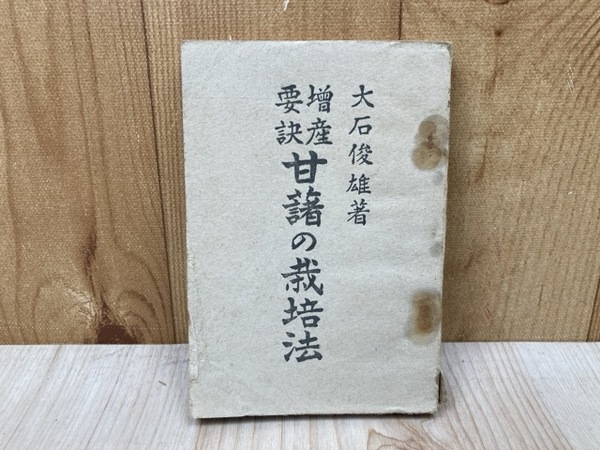 大石俊雄著
増産
要訣
甘藷の栽培法